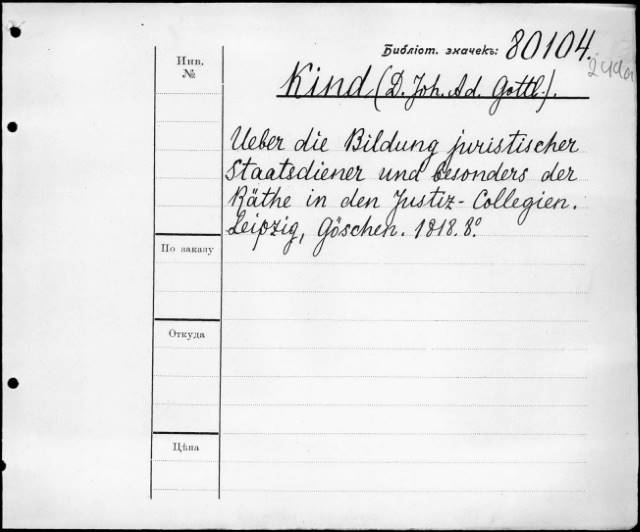 Библіот. значекъ: 80104.
Инв.
№
Kind (D. Joh. Ad. Gottl.).
Ueber die Bildung juristischer
Staatsdiener und besonders der
Räthe in den Justiz-Collegien.
Leipzig, Göschen. 1818. 8º.
По заказу
Откуда
Цѣна